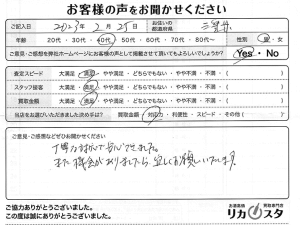 お客様の声をお聞かせください
ご記入日 2023年 2月 25日 お住いの都道府県 三重県
年齢 20代・30代・40代・50代・60代・70代・80代〜 性別 男・女
ご意見・ご感想などを弊社ホームページにお客様の声として掲載させて頂いてもよろしいでしょうか? Yes・No
査定スピード 大満足・満足・やや満足・どちらでもない・やや不満・不満・( )
スタッフ接客 大満足・満足・やや満足・どちらでもない・やや不満・不満・( )
買取金額 大満足・満足・やや満足・どちらでもない・やや不満・不満・( )
当店をお選びいただきました決め手は? 買取金額・対応力・利便性・スピード・その他( )
ご意見・ご感想などぜひお聞かせください
丁寧な対応で安心できました。
また機会がありましたら宜しくお願いいたします。
ご協力ありがとうございました。
この度は誠にありがとうございました。
お酒高価買取専門店
リカスタ